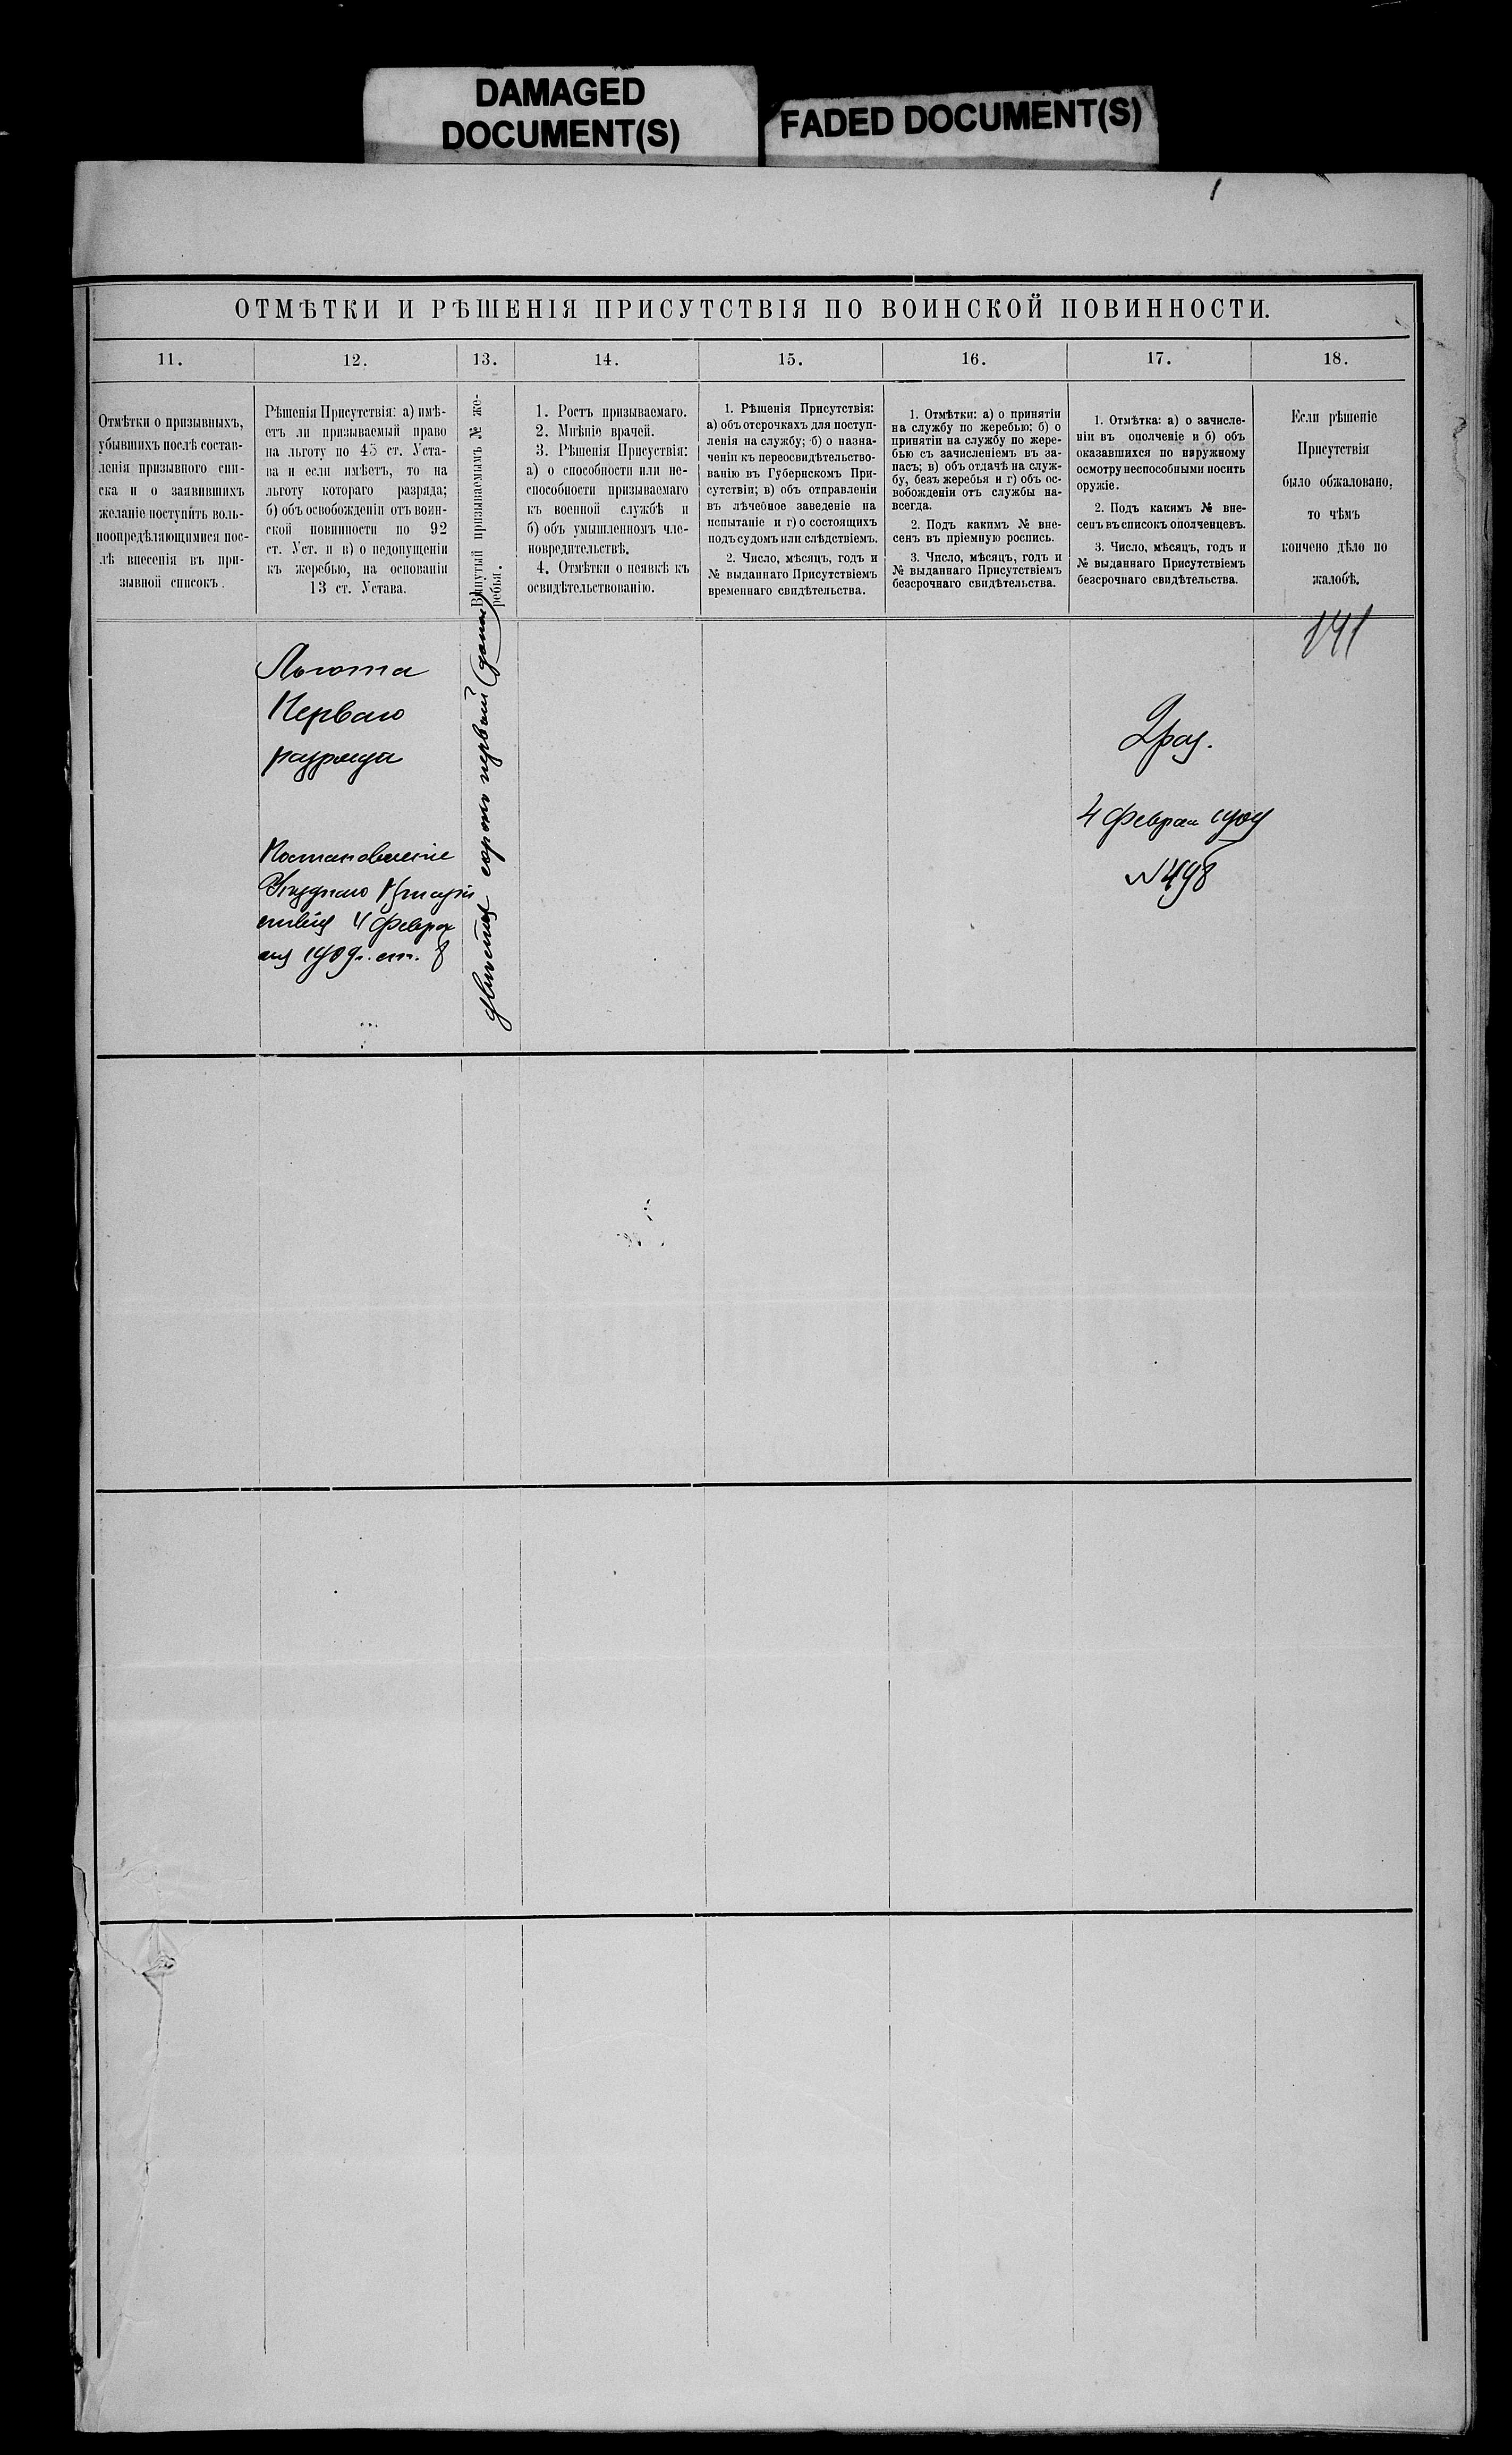 DAMAGED
DOCUMENT(S)
FADED DOCUMENT(S)
ОТМѢТКИ И РѢШЕНІЯ ПРИСУТСТВІЯ ПО ВОИНСКОЙ ПОВИННОСТИ.
11.
12.
13.
14.
15.
16.
17.
18.
Отмѣтки о призывныхъ,
убывшихъ послѣ состав-
ленія призывного спи-
ска и о заявившихъ
желаніе поступить воль-
ноопредѣляющимися пос-
лѣ внесенія въ при-
зывной списокъ.
Рѣшенія Присутствія: а) имѣ-
етъ ли призываемый право
на льготу по 45 ст. Уста-
ва и если имѣетъ, то на
льготу котораго разряда;
б) объ освобожденіи отъ воин-
ской повинности по 92
ст. Уст. и в) о недопущеніи
къ жеребью, на основаніи
13 ст. Устава.
Вынутый призываемымъ № же-
ребья.
1. Ростъ призываемаго.
2. Мнѣніе врачей.
3. Рѣшенія Присуствія:
а) о способности или не-
способности призываемаго
къ военной службѣ и
б) объ умышленномъ чле-
новредительствѣ.
4. Отмѣтки о неявкѣ къ
освидѣтельствованію.
1. Рѣшенія Присутствія:
а) объ отсрочкахъ для поступ-
ленія на службу; б) о назна-
ченіи къ переосвидѣтельство-
ванію въ Губернскомъ При-
сутствіи; в) объ отправленіи
въ лѣчебное заведеніе на
испытаніе и г) о состоящихъ
подъ судомъ или слѣдствіемъ.
2. Число, мѣсяцъ, годъ и
№ выданнаго Присутствіемъ
временнаго свидѣтельства.
1. Отмѣтки: а) о принятіи
на службу по жеребью; б) о
принятіи на службу по жере-
бью съ зачисленіемъ въ за-
пасъ; в) объ отдачѣ на служ-
бу, безъ жеребья и г) объ ос-
вобожденіи отъ службы на-
всегда.
2. Подъ какимъ № вне-
сенъ въ пріемную роспись.
3. Число, мѣсяцъ, годъ и
№ выданнаго Присутствіемъ
безсрочнаго свидѣтельства.
1. Отмѣтка: а) о зачисле-
ніи въ ополченіе и б) объ
оказавшихся по наружному
осмотру неспособными носить
оружіе.
2. Подъ какимъ № вне-
сенъ въ списокъ ополченцевъ.
3. Число, мѣсяцъ, годъ и
№ выданнаго Присутствіемъ
безсрочнаго свидѣтельства.
Если рѣшеніе
Присутствія
было обжаловано,
то чѣмъ
кончено дѣло по
жалобѣ.
141
Льгота
Перваго
разряда
Постановленіе
Уѣзднаго
ствія 4 Февра
ля 1909 г. ст. 8
двѣсти сорокъ первый
2 раз.
4 Феврал 1909
№ 498